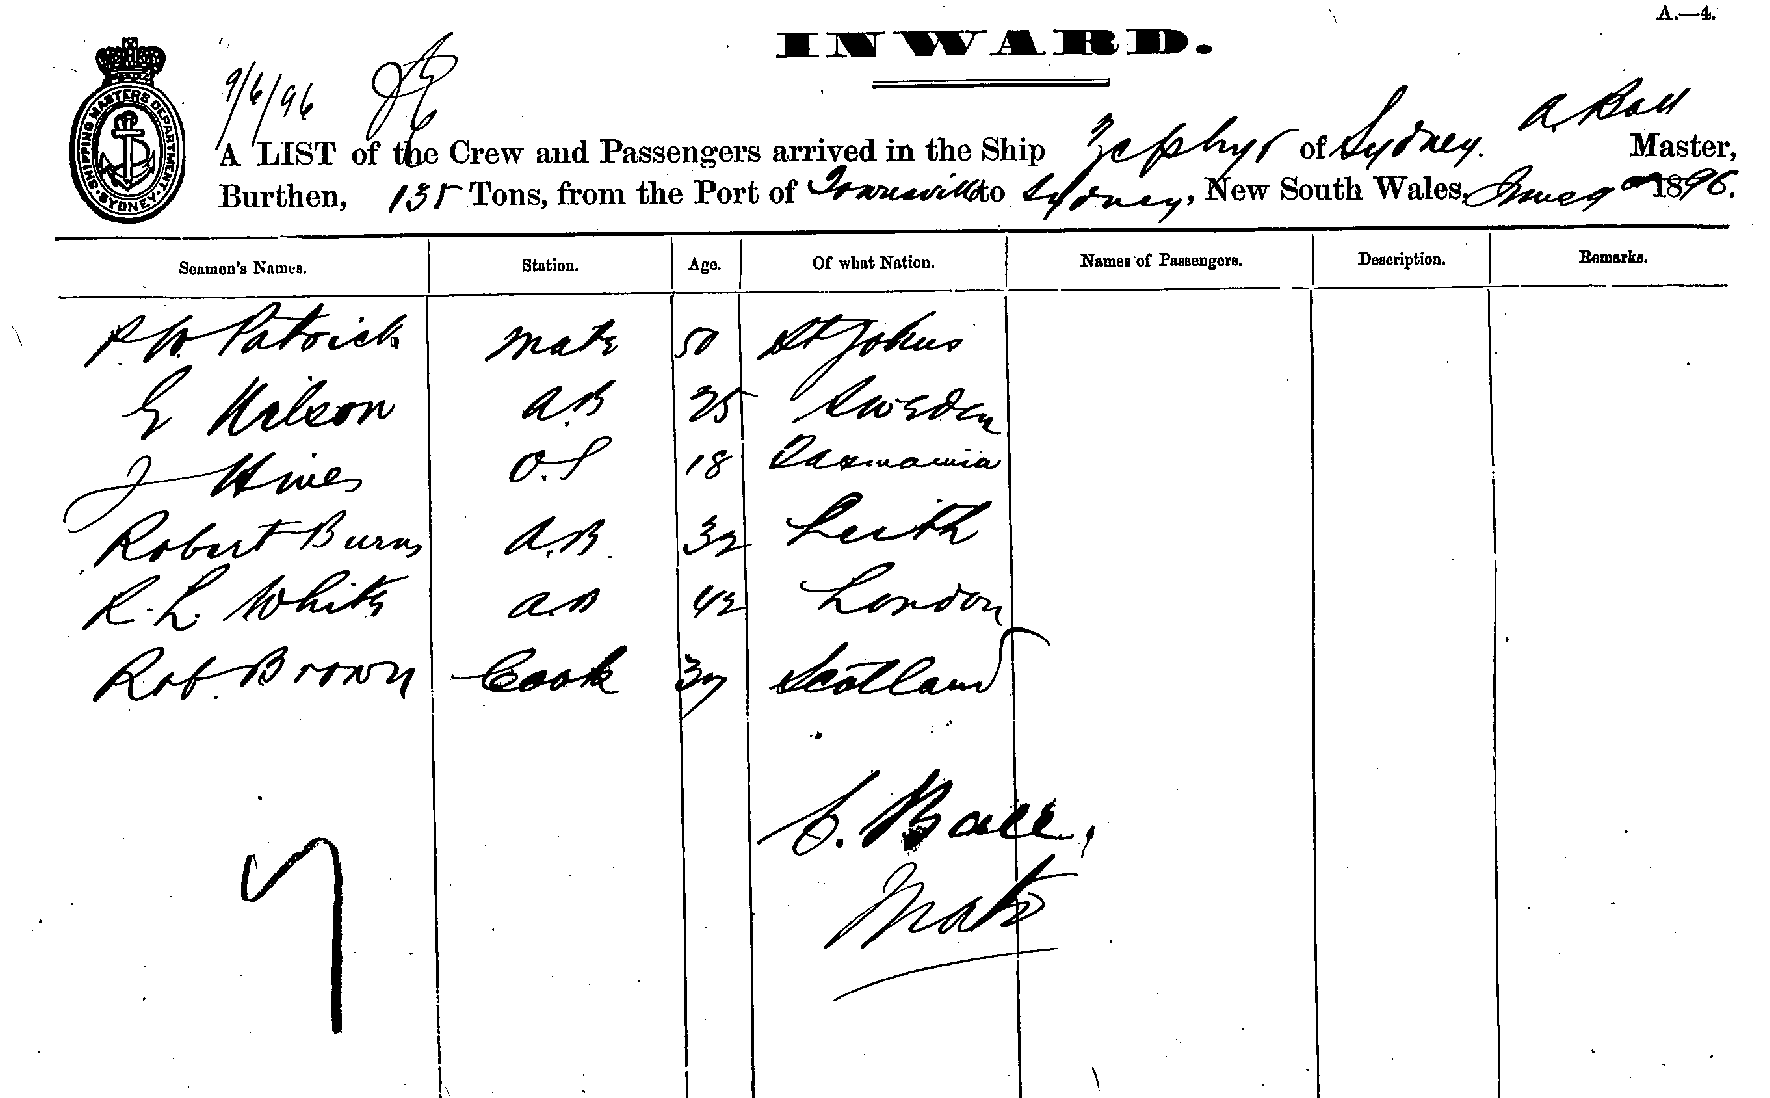 A.—4.
INWARD.
SHIPPING MASTERS DEPARTMENT SYDNEY
9/6/96
A LIST of the Crew and Passengers arrived in the Ship Zephyr of Sydney. A. Ball Master,
Burthen, 135 Tons, from the Port of Townsville to Sydney, New South Wales, June 9th 1896.
Seamen's Names. Station. Age. Of what Nation. Names of Passengers. Description. Remarks.
P. W. Patrick Mate 50 St Johns
G Nilson A.B 25 Sweden
J Hines O.S 18 Tasmania
Robert Burns A.B. 32 Leith
R. L. White A.B 42 London
Rob. Brown Cook 37 Scotland
Ball,
Mate
7